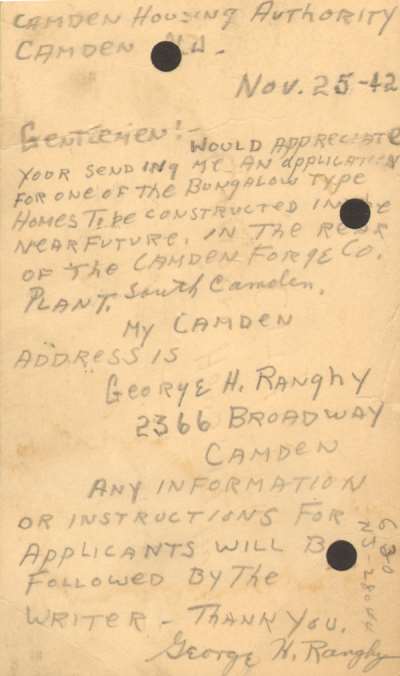 CAMDEN HOUSING AUTHORITY
CAMDEN NJ.
NOV. 25-42
GENTLEMEN!- WOULD APPRECIATE
YOUR SENDING ME AN APPLICATION
FOR ONE OF THE BUNGALOW TYPE
HOMES TO BE CONSTRUCTED IN THE
NEAR FUTURE, IN THE REAR
OF THE CAMDEN FORGE CO.
PLANT, South Camden,
MY CAMDEN
ADDRESS IS
GEORGE H. RANGHY
2366 BROADWAY
CAMDEN
ANY INFORMATION
OR INSTRUCTIONS FOR
APPLICANTS WILL BE
FOLLOWED BY THE
WRITER - THANK YOU.
George H. Ranghy